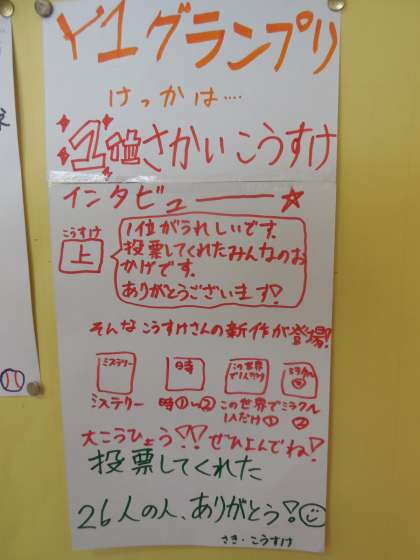 Y1グランプリ
けっかは‥‥
1位さかいこうすけ
インタビュー――☆
こうすけ
上
1位がうれしいです。
投票してくれたみんなのお
かげです。
ありがとうございます!
そんなこうすけさんの新作が登場!
ミステリー
時
この世界
で1人だけ
ミラクル
②
ミステリー
時①〜②
この世界で
1人だけ①
ミラクル
②
大こうひょう!!ぜひよんでね!
投票してくれた
26人の人、ありがとう!
さき・こうすけ